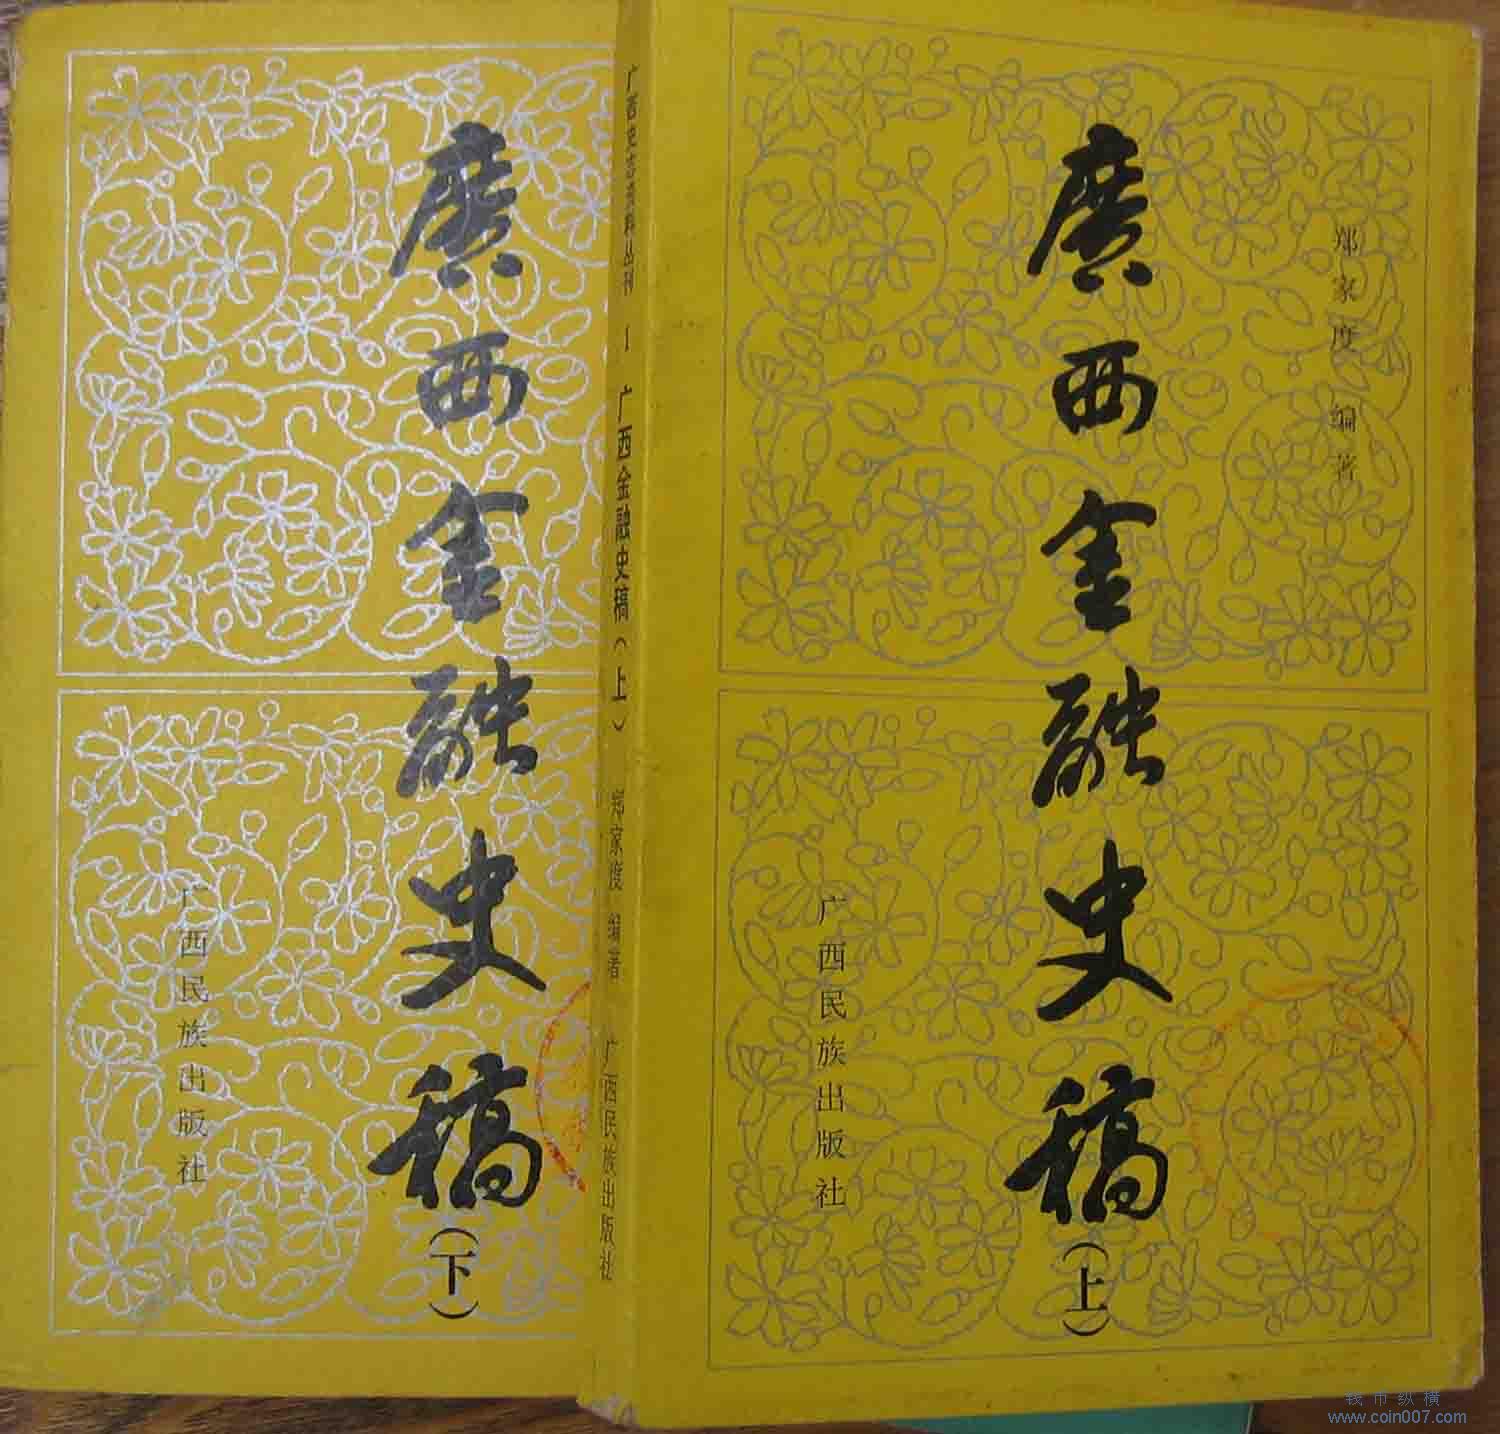 廣西金融史稿(上)
郑家度 编著
广西民族出版社
广西史志资料丛刊 1 广西金融史稿(上) 郑家度 编著 广西民族出版社
廣西金融史稿(下)
广西民族出版社
钱币纵横
www.coin007.com